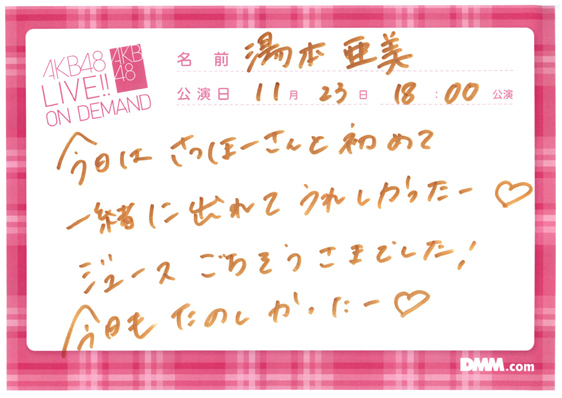 AKB48
LIVE!!
ON DEMAND
AKB
48
名前 湯本亜美
公演日 11月23日 18:00公演
今日は さっほーさんと初めて
一緒に出れてうれしかったー♡
ジュース ごちそうさまでした!
今日も たのしかったー♡
DMM.com